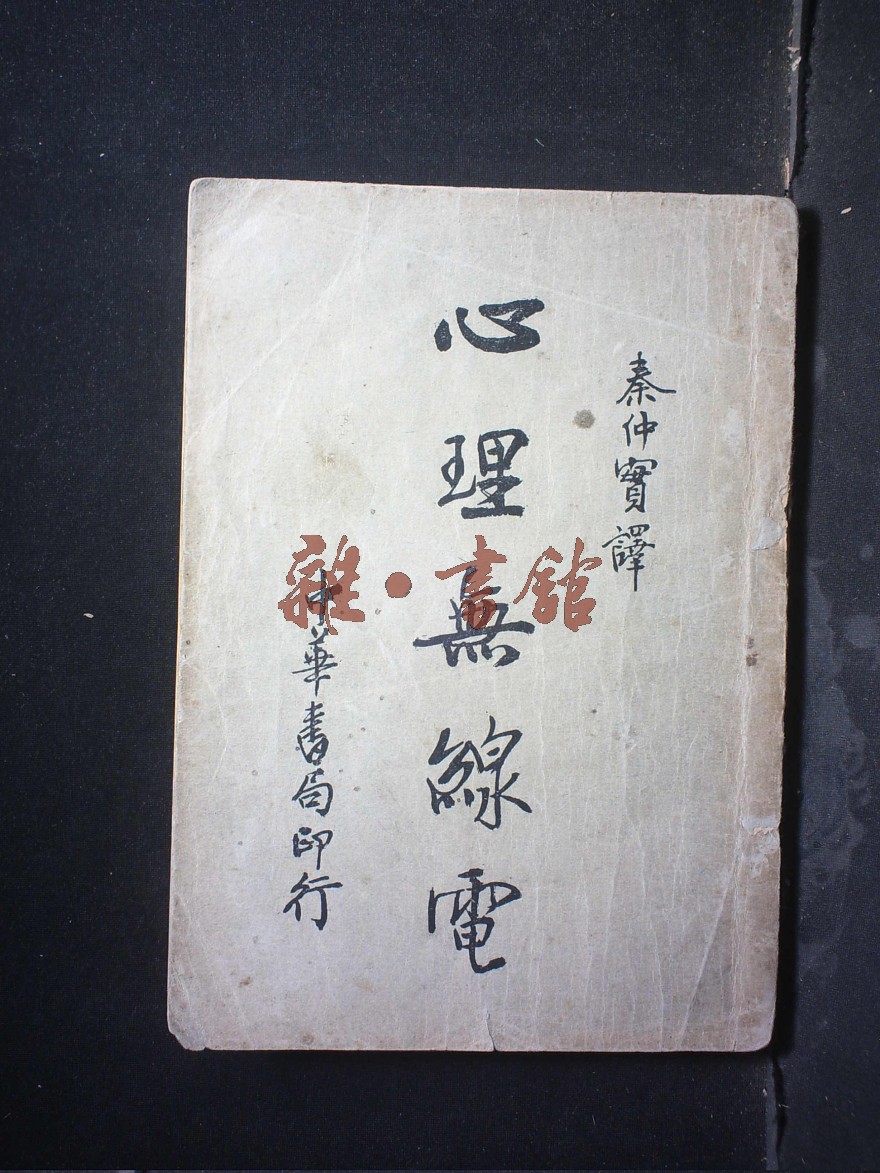 秦仲實譯
心理無線電
中華書局印行
雜·書館